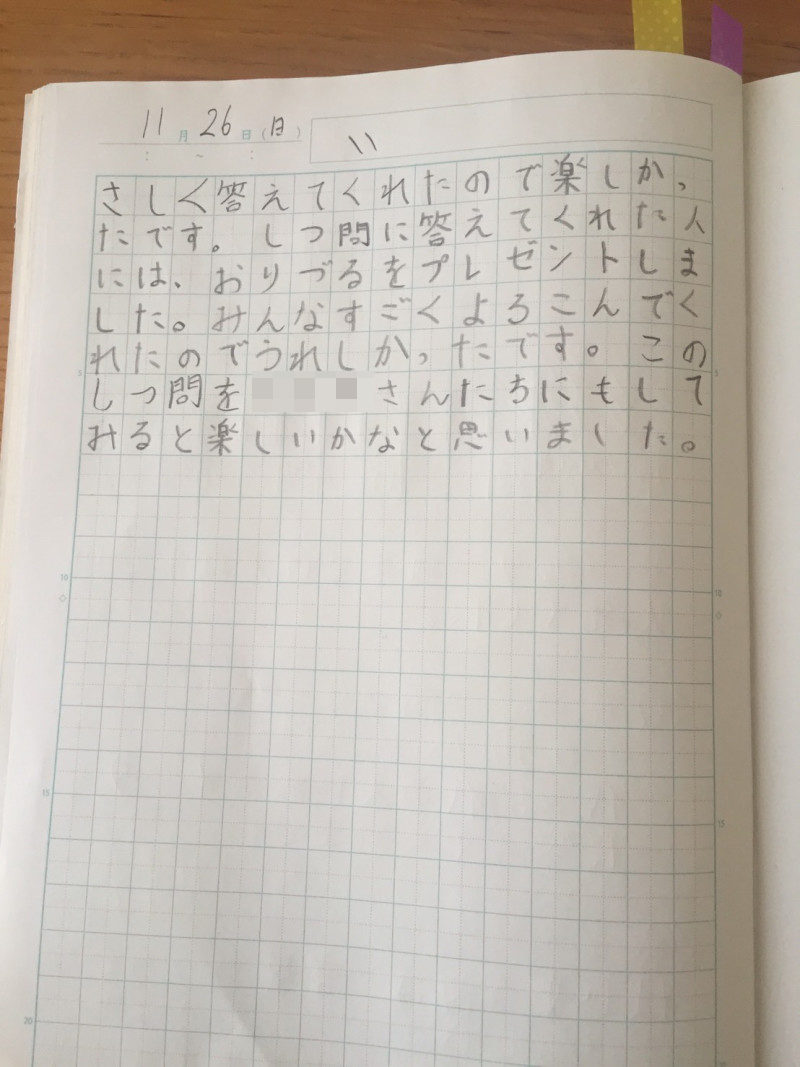 11月26日(日)
〃
さしく答えてくれたので楽しかっ
たです。しつ問に答えてくれた人
には、おりづるをプレゼントしま
した。みんなすごくよろこんでく
れたのでうれしかったです。この
しつ問を さんたちにもして
みると楽しいかなと思いました。
5
5
10
10
15
15
20